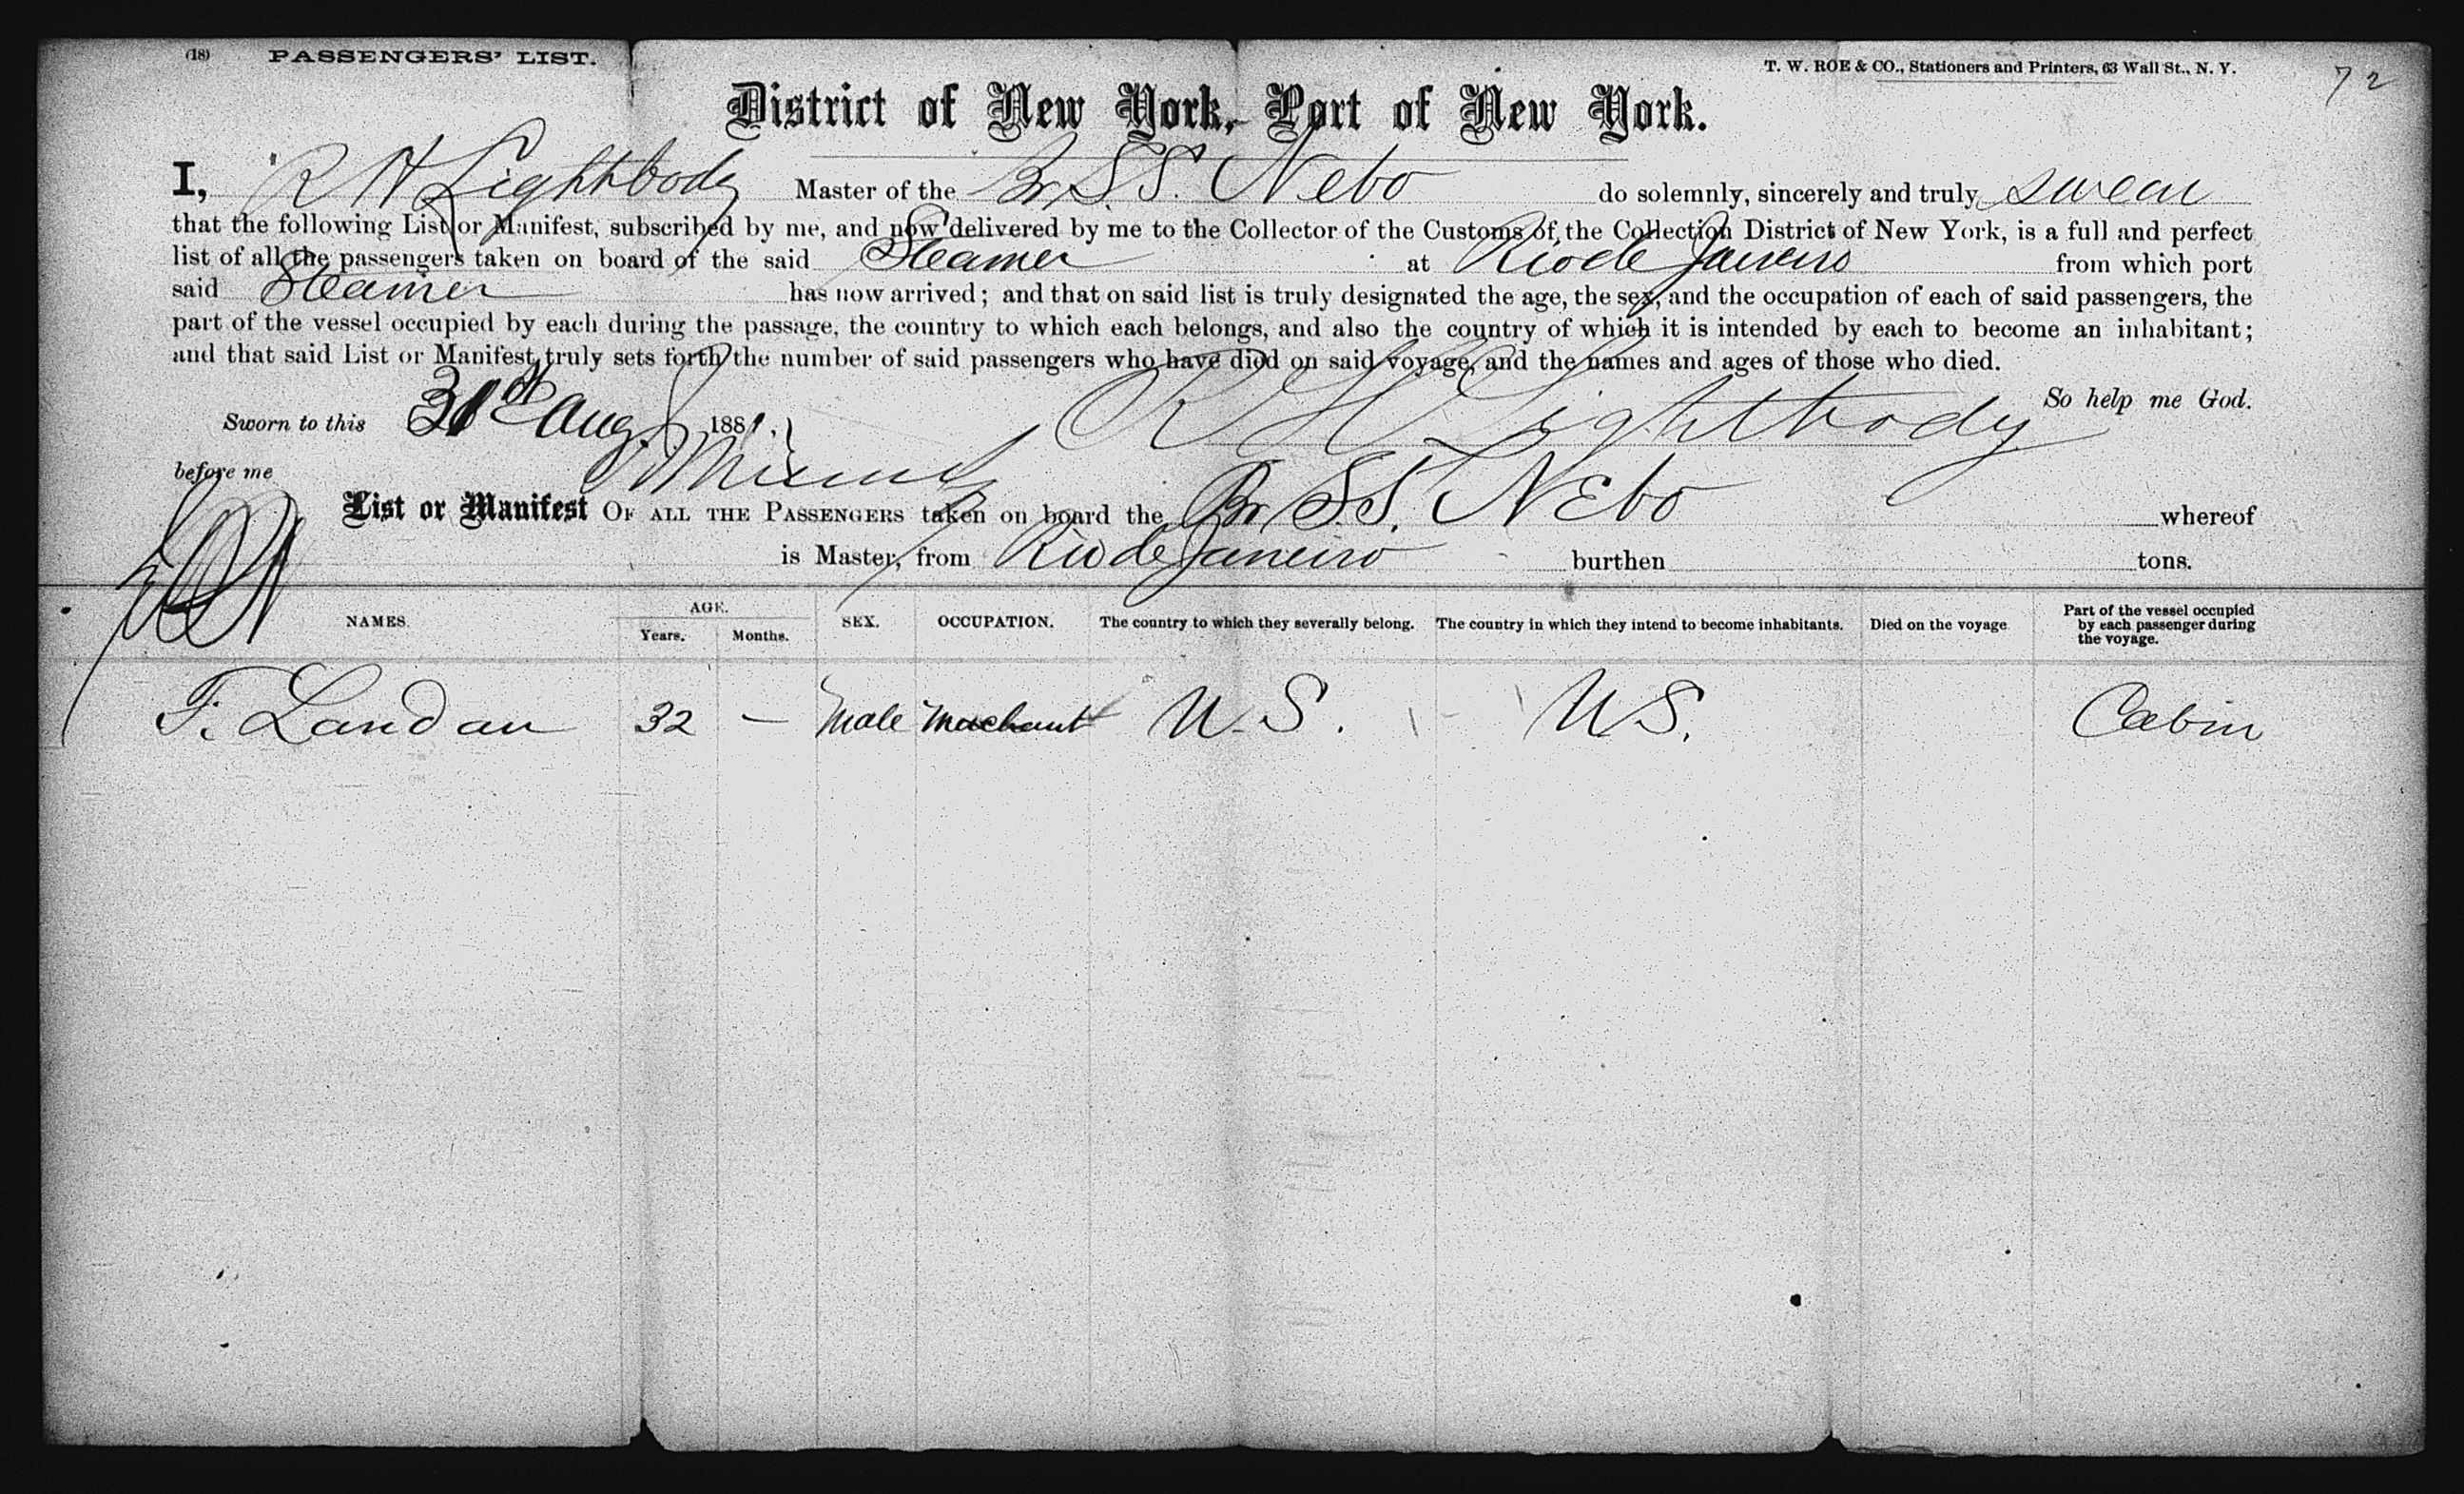 (18) PASSENGERS' LIST.
T. W. ROE & CO., Stationers and Printers, 63 Wall St., N. Y.
72
District of New York, Port of New York.
I, R H Lightbody Master of the Br S.S. Nebo do solemnly, sincerely and truly swear
that the following List or Manifest, subscribed by me, and now delivered by me to the Collector of the Customs of the Collection District of New York, is a full and perfect
list of all the passengers taken on board of the said Steamer at Rio de Janeiro from which port
said Steamer has now arrived; and that on said list is truly designated the age, the sex, and the occupation of each of said passengers, the
part of the vessel occupied by each during the passage, the country to which each belongs, and also the country of which it is intended by each to become an inhabitant;
and that said List or Manifest truly sets forth the number of said passengers who have died on said voyage, and the names and ages of those who died.
So help me God.
Sworn to this 31st Aug. 1881, R H Lightbody
before me
List or Manifest OF ALL THE PASSENGERS taken on board the Br S.S. Nebo whereof
is Master, from Rio de Janeiro burthen tons.
NAMES. AGE. Years. Months. SEX. OCCUPATION. The country to which they severally belong. The country in which they intend to become inhabitants. Died on the voyage. Part of the vessel occupied by each passenger during the voyage.
F. Landau 32 — Male Merchant U.S. U.S. Cabin